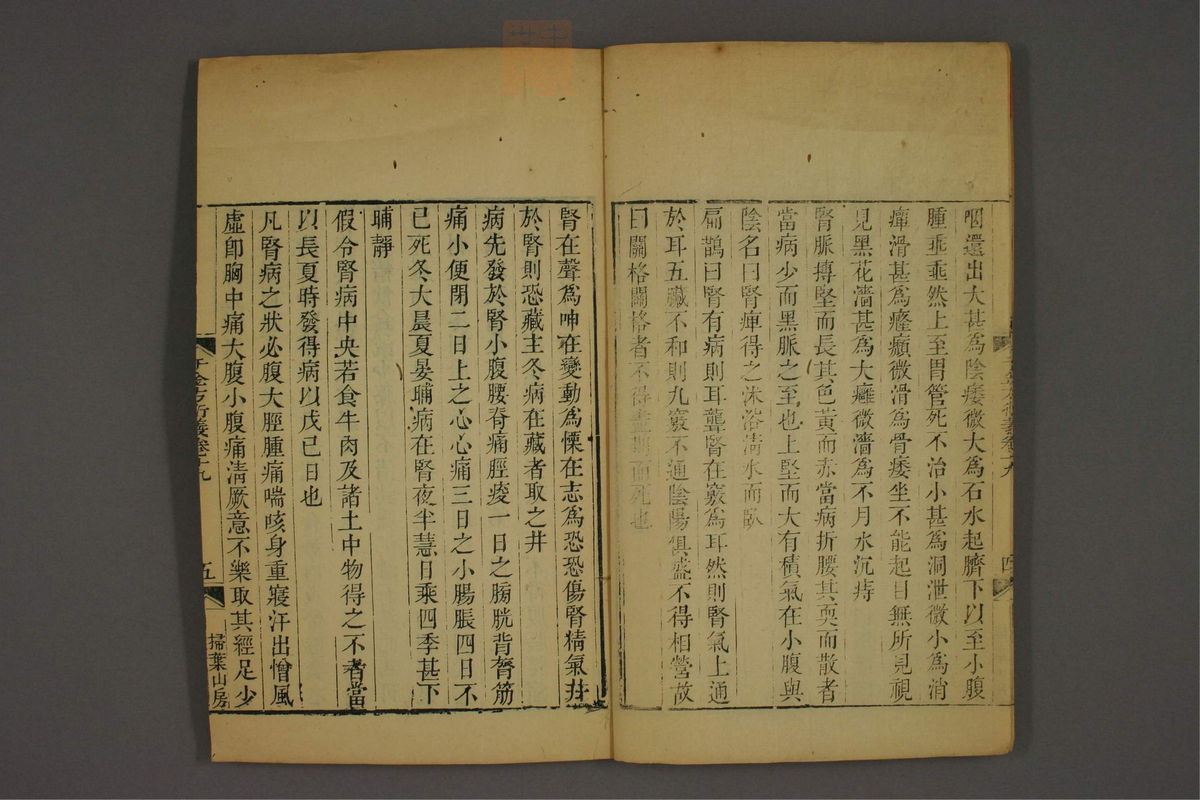 咽還出大甚爲陰痿微大爲石水起臍下以至小腹
腫垂垂然上至胃管死不治小甚爲洞泄微小爲消
癉滑甚爲癃癩微滑爲骨痿坐不能起目無所見視
見黑花濇甚爲大癰微濇爲不月水沉痔
腎脈搏堅而長其色黃而赤當病折腰其耎而散者
當病少血黑脈之至也上堅而大有積氣在小腹與
陰名曰腎痺得之沐浴淸水而臥
扁鵲曰腎有病則耳聾腎在竅爲耳然則腎氣上通
於耳五臟不和則九竅不通陰陽俱盛不得相營故
曰關格關格者不得盡期而死也
千金方衍義卷十九
四
腎在聲爲呻在變動爲慄在志爲恐恐傷腎精氣幷
於腎則恐藏主冬病在藏者取之井
病先發於腎小腹腰脊痛脛痠一日之膀胱背膂筋
痛小便閉二日上之心心痛三日之小腸脹四日不
已死冬大晨夏晏晡病在腎夜半慧日乘四季甚下
晡靜
假令腎病中央若食牛肉及諸土中物得之不者當
以長夏時發得病以戊己日也
凡腎病之狀必腹大脛腫痛喘咳身重寢汗出憎風
虛卽胸中痛大腹小腹痛淸厥意不樂取其經足少
千金方衍義卷十九
五
掃葉山房